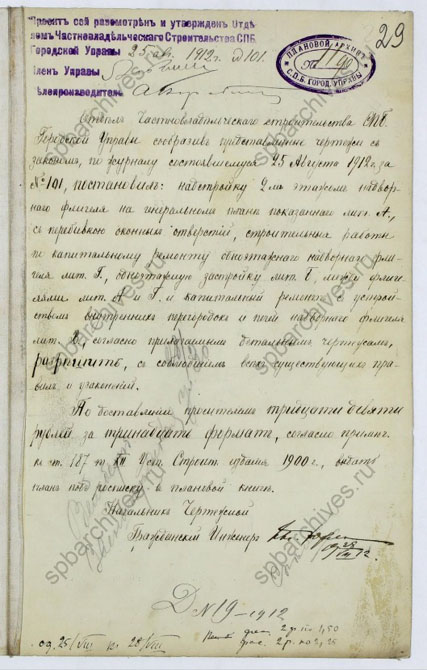 Проектъ сей разсмотрѣнъ и утвержденъ Отдѣ-
ломъ Частновладѣльческаго Строительства СПБ.
Городской Управы 25 авг. 1912 г. № 101.
Членъ Управы
Дѣлопроизводитель
ПЛАНОВОЙ АРХИВЪ
С.П.Б. ГОРОД. УПРАВЫ
29
Отдѣлъ Частновладѣльческаго строительства СПБ.
Городской Управы сообразивъ представленные чертежи съ
закономъ, по журналу состоявшемуся 25 Августа 1912 г. за
№ 101, постановилъ: надстройку 2мя этажами надвор-
наго флигеля на генеральномъ планѣ показаннаго лит. А,
съ перебивкою оконныхъ отверстій, строительныя работы
по капитальному ремонту одноэтажнаго надворнаго фли-
геля лит. Г, одноэтажную застройку лит. Б, между флиге-
лями лит. А и Г, и капитальный ремонтъ съ устрой-
ствомъ внутреннихъ перегородокъ и печей надворнаго флигеля
лит. согласно прилагаемымъ детальнымъ чертежамъ,
разрѣшить, съ соблюденіемъ всѣхъ существующихъ пра-
вилъ и узаконеній.
По доставленіи просителемъ тридцати девяти
рублей за тринадцать форматъ, согласно прилож.
къ ст. 187 т. XII Уст. Строит. изданія 1900 г., выдать
планъ подъ росписку въ плановой книгѣ.
Начальникъ Чертежной
Гражданскій Инженеръ
D N 19-1912
од. 25/VIII 28/VIII
2 р. по 1,50
2 р. по 2,25
spbarchives.ru